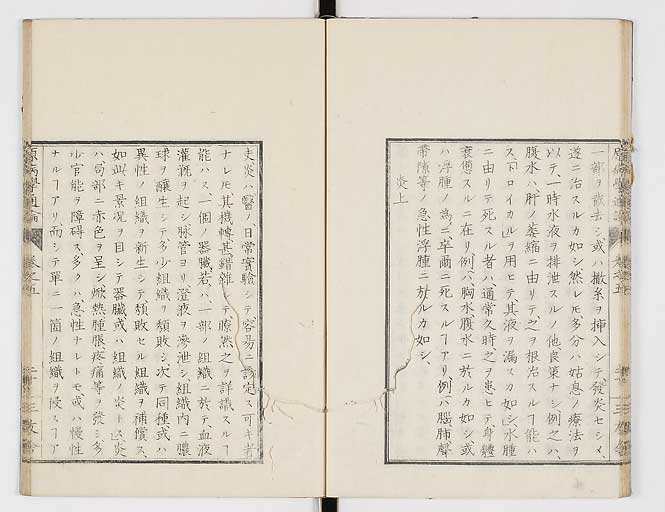 一部ヲ截去シ或ハ撒糸ヲ挿入シテ發炎セシメ、
遂ニ治スルカ如シ然レモ多分ハ姑息ノ療法ヲ
以テ一時水液ヲ排泄スルノ他良策ナシ例之ハ、
腹水ハ肝ノ萎縮ニ由リテ之ヲ根治スル㆒能ハ
ス「トロイカル」ヲ用ヒテ其液ヲ漏スカ如シ水腫
ニ由リテ死スル者ハ通常久時之ヲ患ヒテ身體
衰憊スルニ在リ例ハ胸水腹水ニ於ルカ如シ或
ハ浮腫ノ為ニ卒爾ニ死スル㆒アリ例ハ腦肺聲
帶隙等ノ急性浮腫ニ於ルカ如シ、
炎上
夫炎ハ醫ノ日常實驗シテ容易ニ診定ス可キ者
ナレモ其機轉甚錯雜シテ瞭然之ヲ詳識スル㆒
能ハス一個ノ器臟若ハ一部ノ組織ニ於テ血液
灌漑ヲ起シ脈管ヨリ澄液ヲ滲泄シ組織内ニ膿
球ヲ釀生シテ多少組織ヲ頽敗シ次テ同種或ハ
異性ノ組織ヲ新生シテ頽敗セル組織ヲ補償ス、
如此キ景況ヲ目シテ器臟或ハ組織ノ炎ト云炎
ハ局部ニ赤色ヲ呈シ焮熱腫脹疼痛等ヲ發シ多
少官能ヲ障碍ス多クハ急性ナレトモ或ハ慢性
ナル㆒アリ而シテ單ニ一箇ノ組織ヲ侵ス㆒ア
原病學通論 卷之五